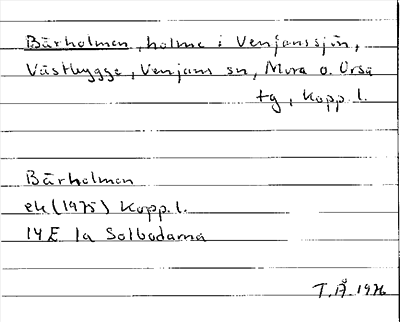 Bärholmen, holme i Venjanssjön,
Västbygge, Venjans sn, Mora o. Orsa
tg, Kopp. l.
Bärholmen
ek (1975) Kopp. l.
14E 1a Solbodarna
T.Å. 1976